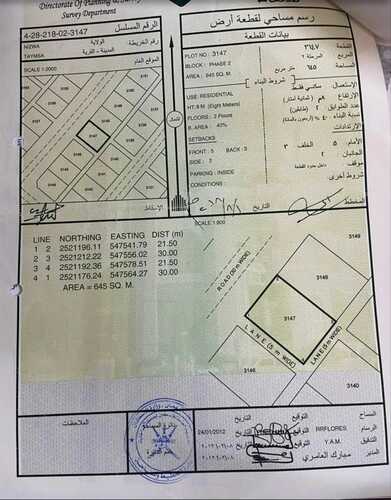 Directorate Of Planning &
Survey Department
رسم مساحي لقطعة أرض
4-28-218-02-3147
الرقم المسلسل
بيانات القطعة
NIZWA
الولاية
TAYMSA
المدينة - القرية
رقم الخريطة
SCALE 1:2000
الموقع العام
PLOT NO : 3147
القطعة ٣١٤٧
BLOCK : PHASE 2
المربع المرحلة ٢
AREA : 645 SQ. M.
المساحة ٦٤٥ متر مربع
شروط البناء
USE: RESIDENTIAL
الاستعمال سكني فقط
HT:8 M (Eight Meters)
الارتفاع ٨م (ثمانية أمتار)
FLOORS : 2 Floors
عدد الطوابق ٢ (طابقين)
B. AREA : 40%
نسبة البناء ٤٠% (أربعون بالمائة)
SETBACKS
الارتدادات
FRONT : 5 BACK : 3
الأمام ٥ الخلف ٣
SIDE : 3
الجانبان
PARKING : INSIDE
موقف داخل حدود القطعة
CONDITIONS :
شروط أخرى
3147
الشمال
الإسكان
التاريخ
المخطط
SCALE 1:500
LINE NORTHING EASTING DIST (m)
1 2 2521196.11 547541.79 21.50
2 3 2521212.22 547556.02 30.00
3 4 2521192.36 547578.51 21.50
4 1 2521176.24 547564.27 30.00
AREA = 645 SQ. M.
3149
3148
3147
3146
3140
ROAD (30 m WIDE)
LANE (5 m WIDE)
LANE (5 m WIDE)
الملاحظات
24/01/2012 التاريخ التوقيع RRFLORES المساح
التاريخ التوقيع Y.A.M. الرسام
التاريخ التوقيع التدقيق
مبارك العامري المدير